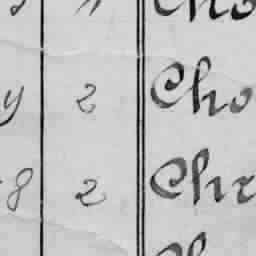 " Cho
y 2 Cho
8 2 Chr